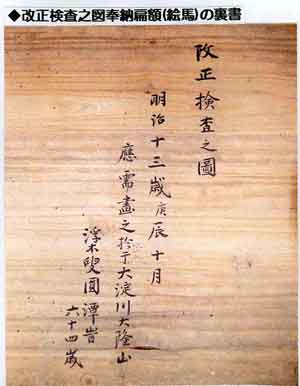 ◆改正検査之図奉納扁額(絵馬)の裏書
改正検査之圖
明治十三歳庚辰十月
應需畫之於于大淀川大隆山
浮木叟圓潭時
六十四歳